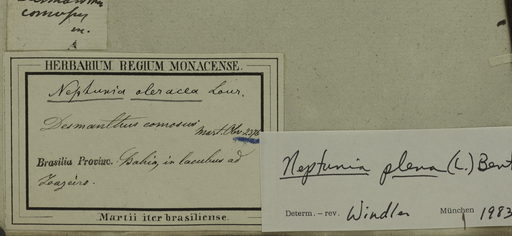 comosus
m.
HERBARIUM REGIUM MONACENSE.
Neptunia oleracea Lour.
Desmanthus comosus Mart. Obs. 2376
Brasilia Provinc. Bahia, in lacubus ad
Joazeiro.
Martii iter brasiliense.
Neptunia plena (L.) Bent
Determ. – rev. Windler München 1983